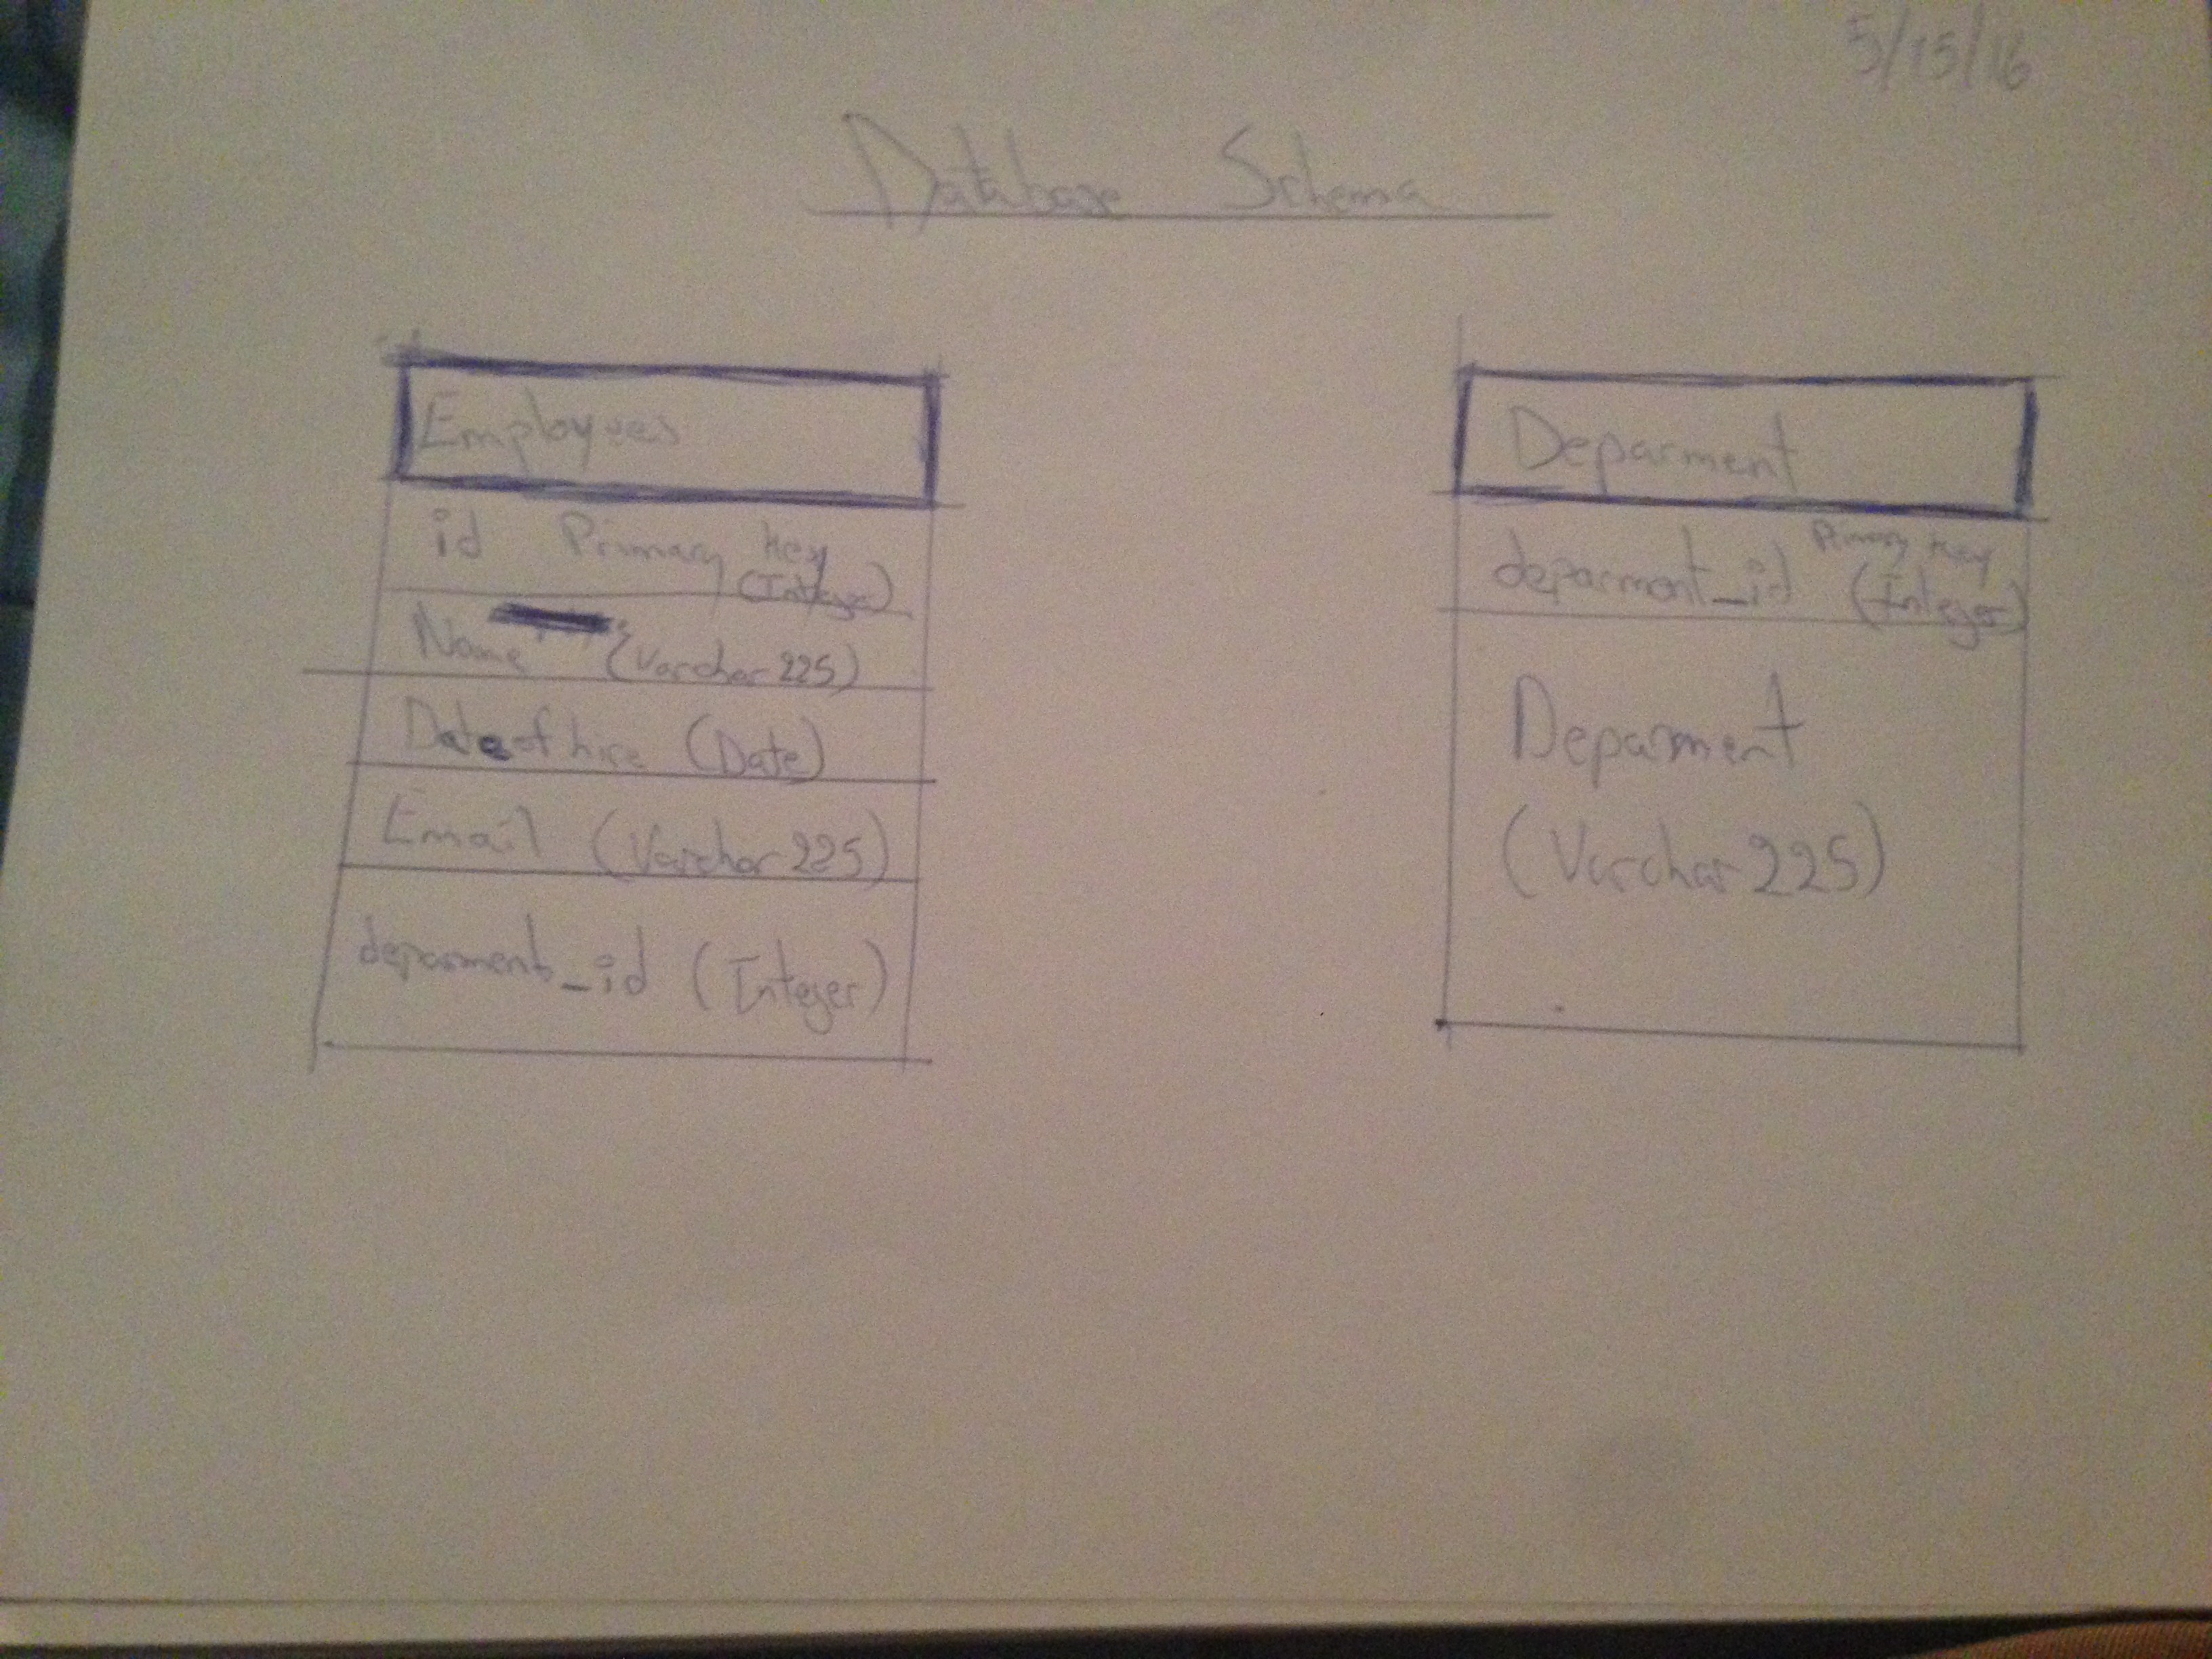 5/15/16
Database Schema
Employees
id Primary Key
(Integer)
Name (Varchar 225)
Date of hire (Date)
Email (Varchar 225)
deparment_id (Integer)
Deparment
Primary Key
deparment_id (Integer)
Deparment
(Varchar 225)